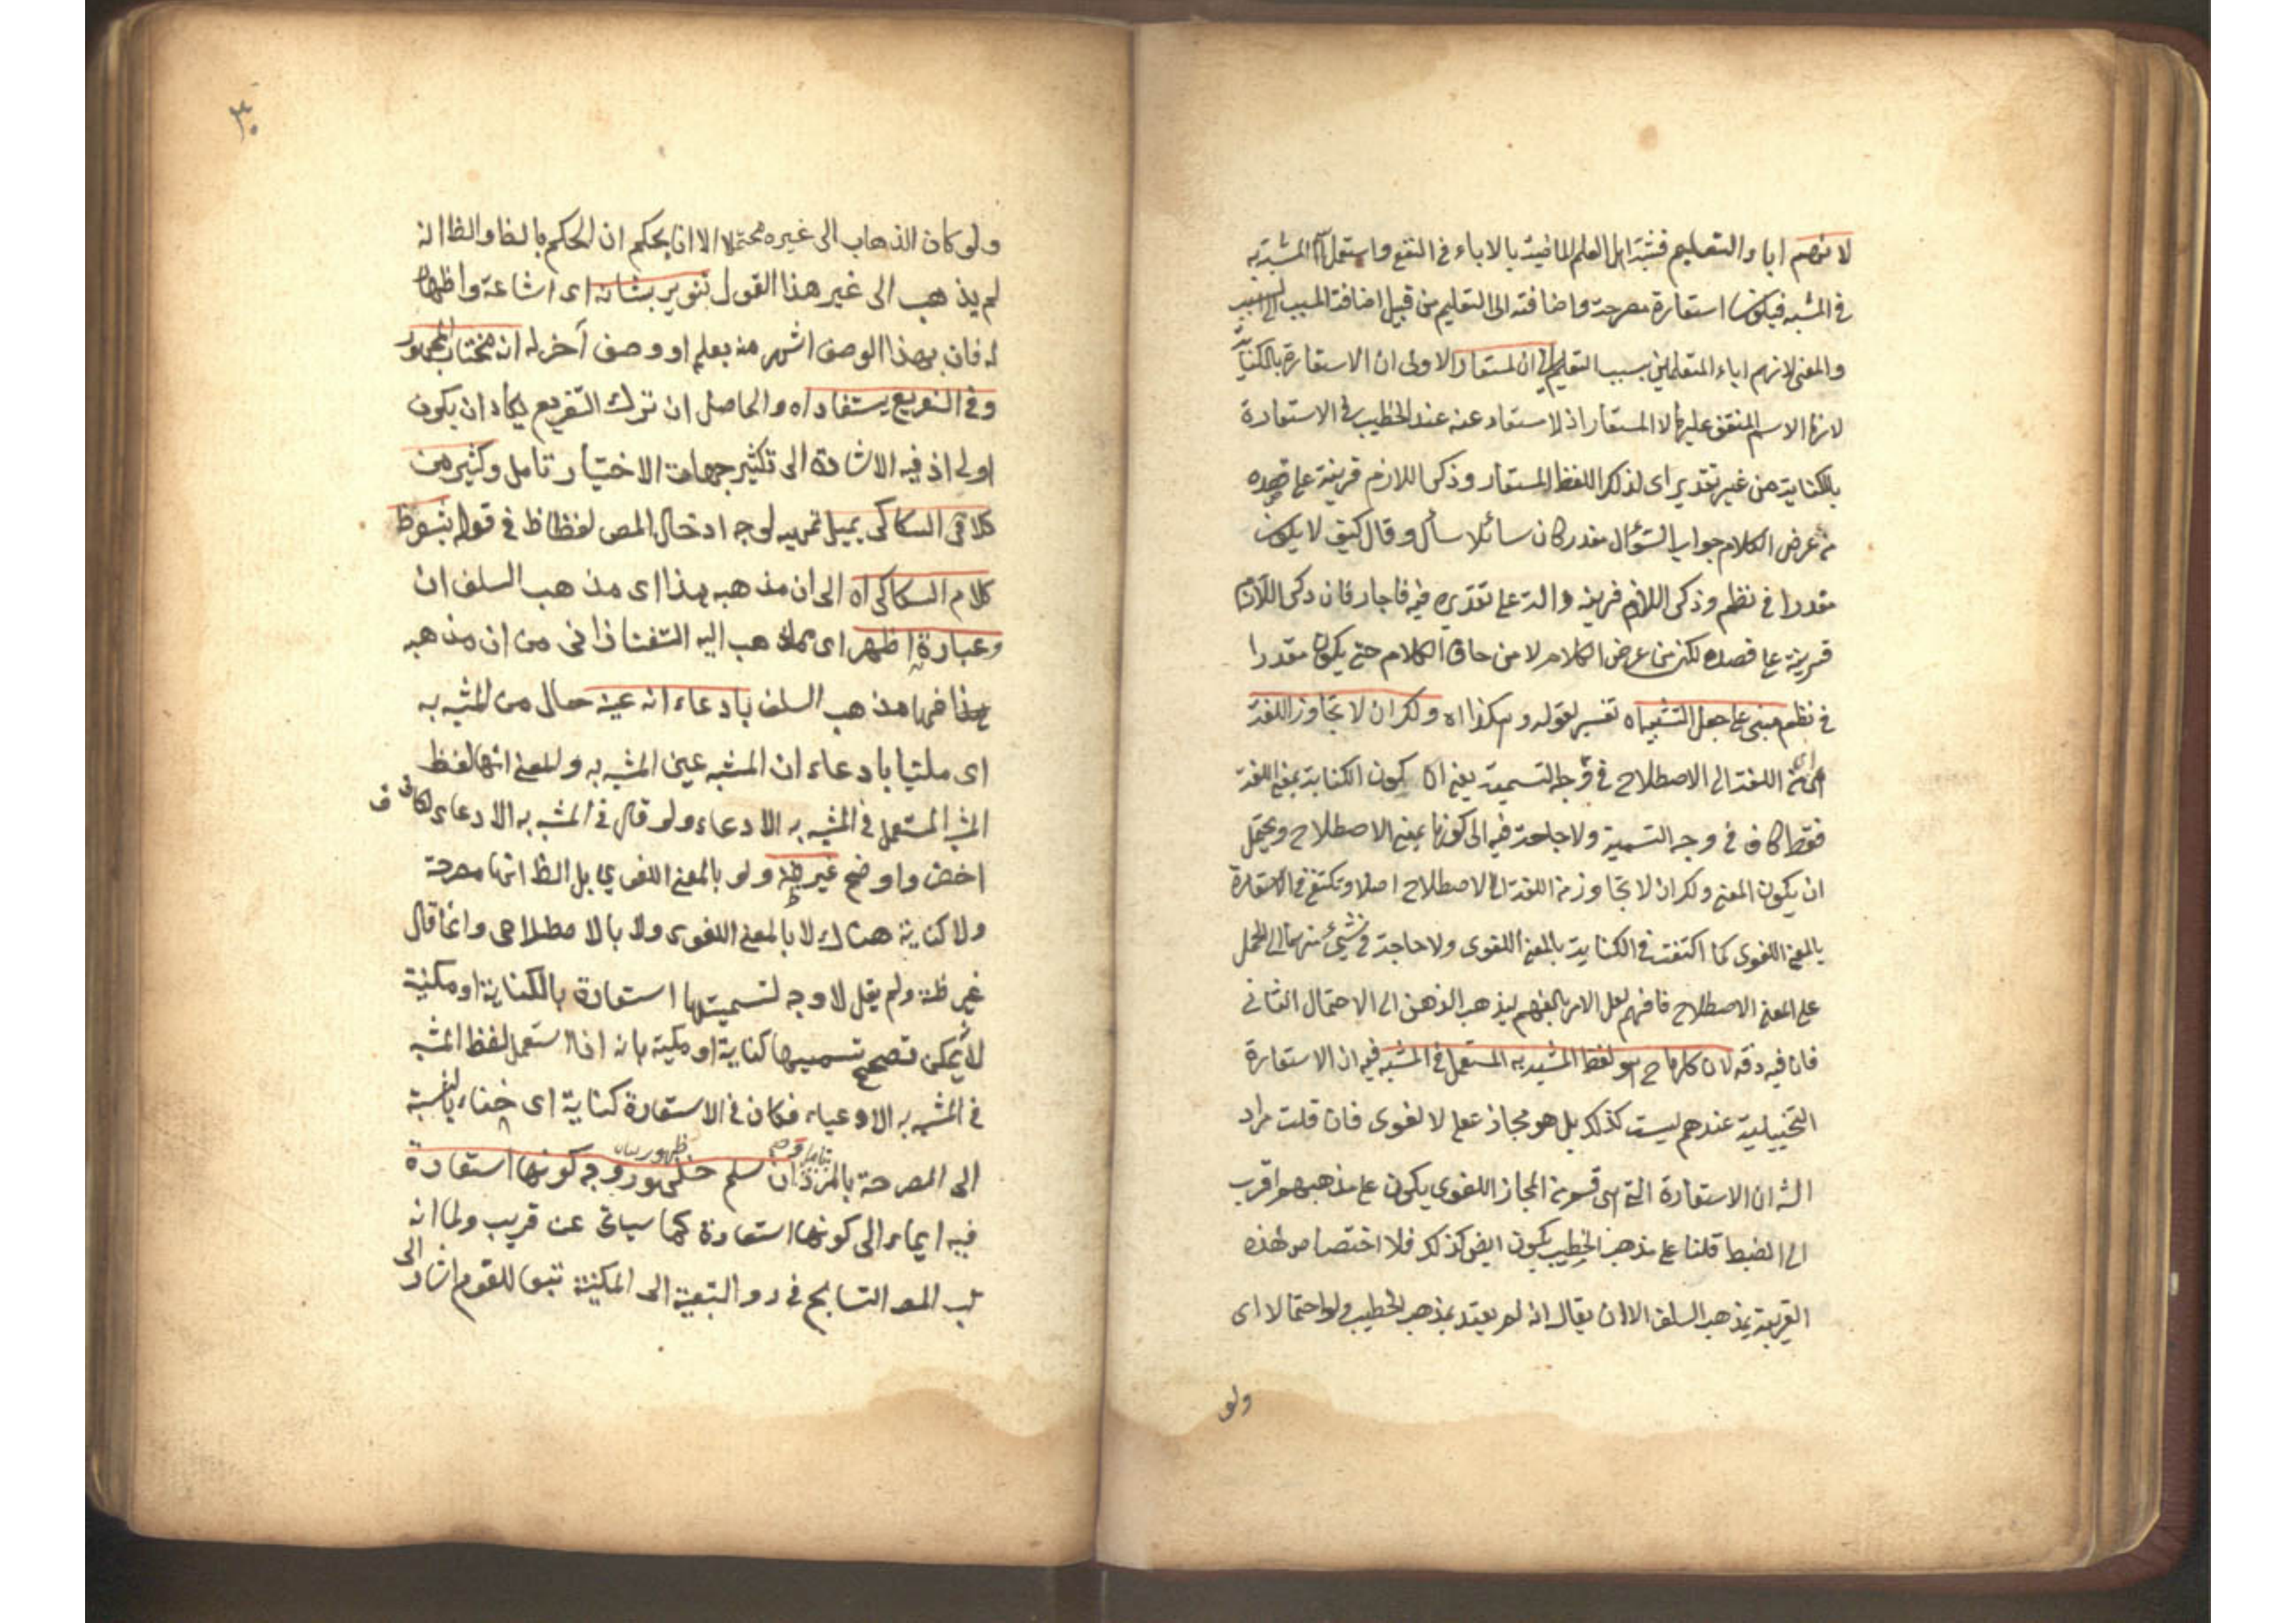 لانهم اباء والتعليم فشبه اهل العلم الماضية بالاباء في النفع واستعمل المشبه به
في المشبه فيكون استعارة مصرحة واضافته الى التعليم من قبيل اضافة المسبب الى السبب
والمعنى لانهم اباء المتعلمين بسبب التعليم ان لمستعار الاولى ان الاستعارة بالكناية
لانها الاسم المتفق عليه لا المستعار اذ لا ستعار عنه عند الخطيب في الاستعارة
بالكناية من غير تقدير اى لذكر اللفظ المستعار وذكر اللازم قرينة على قصده
من عرض الكلام جواب السؤال مقدر كان سائلا سأل وقال كيف لا يكون
مقدرا في نظم وذكر اللازم قرينة دالة على تقديره فيه فاجاب فان ذكر اللازم
قرينة على قصده لكن من عرض الكلام لا من حاق الكلام حتى يكون مقدرا
في نظم مبنى على جعل التشبيه اه تفسير لقوله وهكذا اه ولكن ان لا تجاوز اللغة
اى من اللغة الى الاصطلاح في وجه التسمية يعنى ان كون الكناية بمعنى اللغة
فقط كاف في وجه التسمية ولا حاجة فيه الى كونها بمعنى الاصطلاح ويحتمل
ان يكون المعنى ولكن ان لا تجاوز من اللغة الى الاصطلاح اصلا وتكتفى في الاستعارة
بالمعنى اللغوى كما اكتفت في الكناية بالمعنى اللغوى ولا حاجة في شئ منهما الى الحمل
على المعنى الاصطلاح فافهم لعل الامر بالفهم ليذهب الذهن الى الاحتمال الثانى
فان فيه دقة لان كلامنا ح هو لفظ المشبه به المستعمل في المشبه فيه ان الاستعارة
التخييلية عندهم ليست كذلك بل هو مجاز عقلى لا لغوى فان قلت مراد
الش ان الاستعارة التى هى قسم من المجاز اللغوى يكون على مذهبهم اقرب
الى الضبط قلنا على مذهب الخطيب يكون ايض كذلك فلا اختصاص لهذه
القرينة بمذهب السلف الا ان يقال انه لم يعتد بمذهب الخطيب ولو احتمالا اى
ولو
٣٠
ولو كان الذهاب الى غيره محتملا الا ان يحكم ان الحكم بالظاهر والظ انه
لم يذهب الى غير هذا القول تنوير بشانه اى اشاعة واظهار
له فان بهذا الوصف اشهر منه بعلم او وصف آخر له ان مختار الجمهور
وفى التفريع يستفاد اه والحاصل ان ترك التفريع يكاد ان يكون
اولى اذ فيه الاشارة الى تكثير جهات الاختيار تامل وكثير من
كلام السكاكى يميل تمهيد لوجه ادخال المص لفظ ظ في قوله بنسوظ
كلام السكاكى اه الى ان مذهبه هذا اى مذهب السلف ان
وعبارة اظهر اى مما ذهب اليه التفتازانى من ان مذهبه
هذا مذهب السلف بادعاء انه عينه حال من المشبه به
اى ملتبسا بادعاء ان المشبه عين المشبه به والمعنى انها لفظ
المشبه المستعمل في المشبه به الادعاء ولو قال في المشبه به الادعاء لكان
اخص واوضح غير ظ ولو بالمعنى اللغوى بل الظ انها مصرحة
ولا كناية هناك لا بالمعنى اللغوى ولا بالاصطلاحى وانما قال
غير ظ ولم يقل لا وجه لتسميتها استعارة بالكناية او مكنية
لانه يمكن تصحح تسميتها كناية او مكنية بانه اذا استعمل لفظ المشبه
في المشبه به الادعياء فكان في الاستعارة كناية اى خفاء بالنسبة
الى المصرحة بالمرة ان سلم ظهور وجه كونها استعارة
فيه ايماء الى كونها استعارة كما سيأتى عن قريب ولما انه
المص التسامح في رد التبعية الى المكنية تبعا للقوم اشار الى